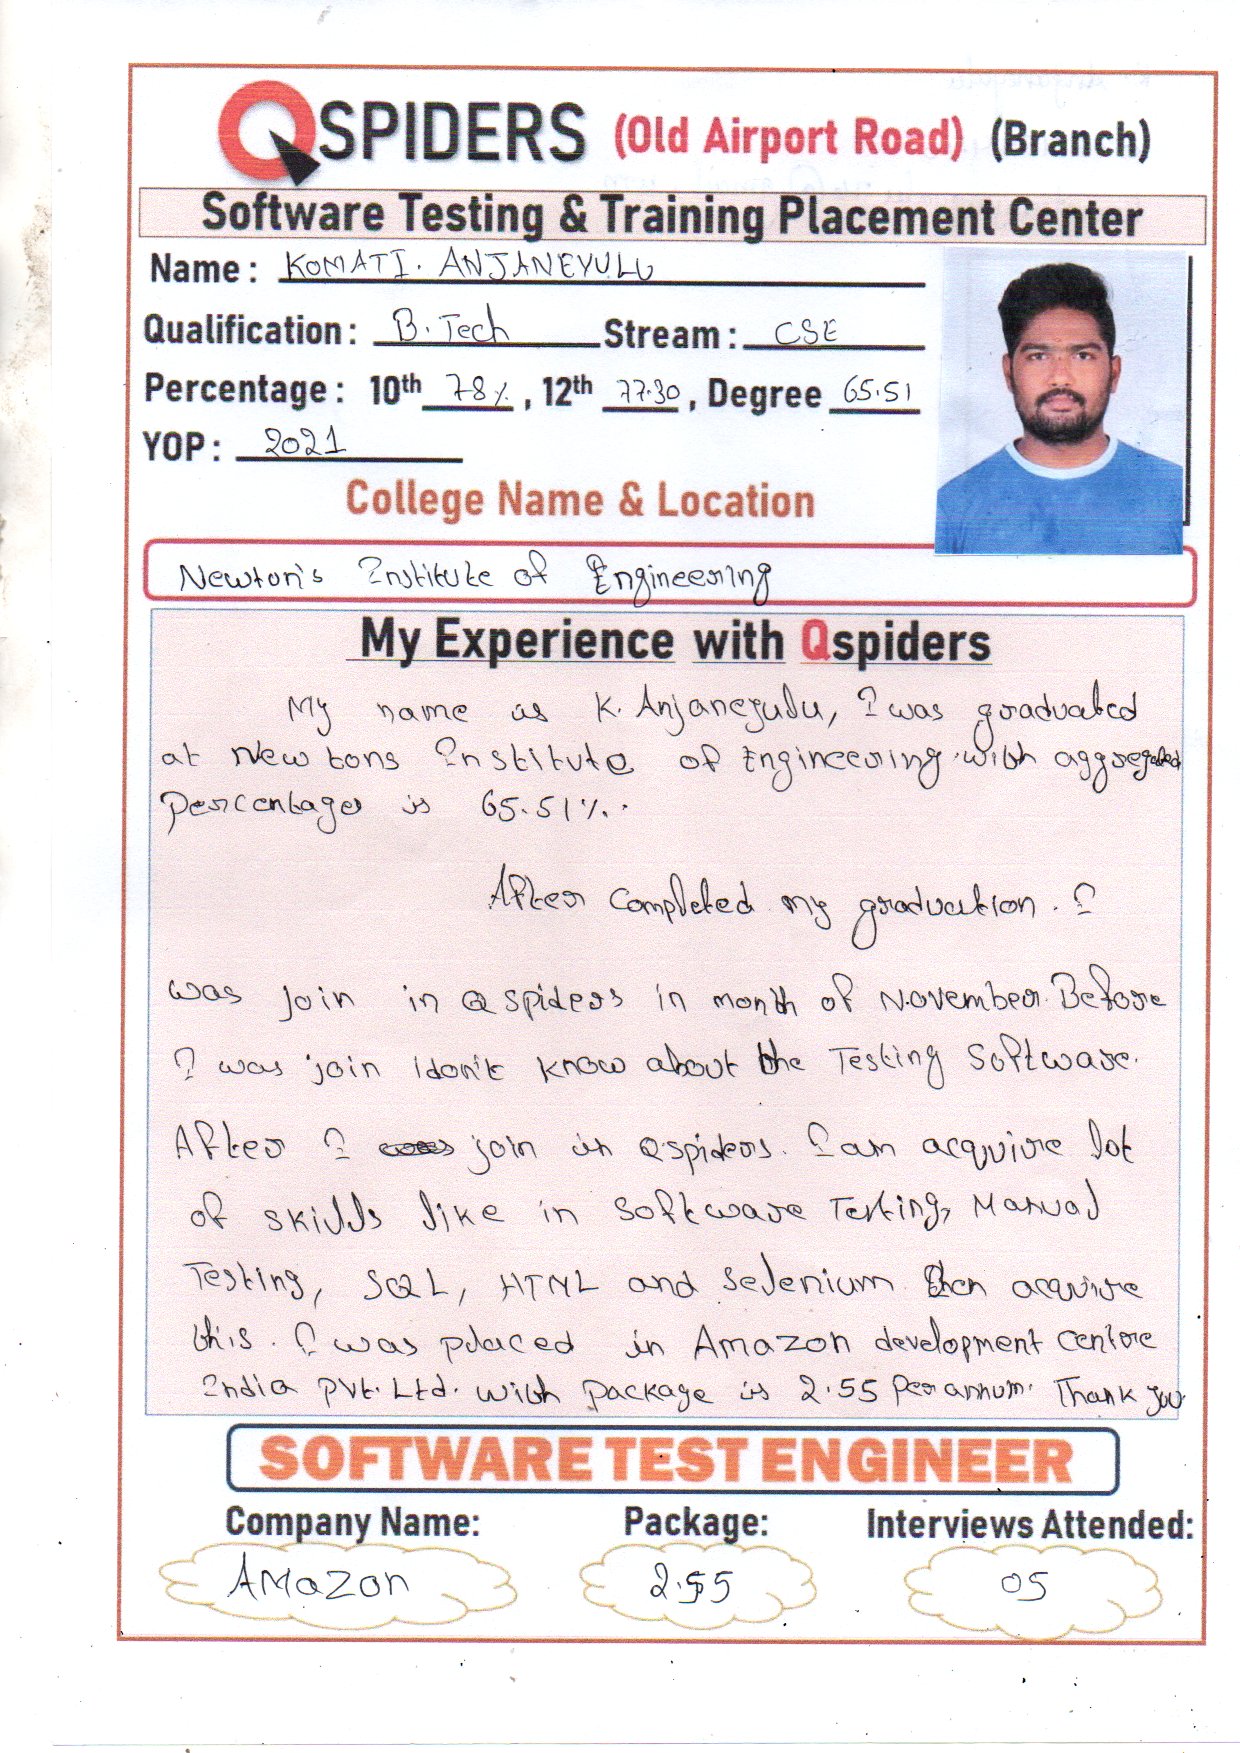 QSPIDERS (Old Airport Road) (Branch)
Software Testing & Training Placement Center
Name : KOMATI. ANJANEYULU
Qualification : B.Tech Stream : CSE
Percentage : 10th 78% , 12th 77.30 , Degree 65.51
YOP : 2021
College Name & Location
Newton's Institute of Engineering
My Experience with Qspiders
My name is K. Anjaneyulu, I was graduated
at Newtons Institute of Engineering with aggregated
percentages is 65.51%.
After completed my graduation. I
was join in Qspiders in month of November. Before
I was join I don't know about the Testing Software.
After I join in Qspiders. I am acquire lot
of skills like in Software Testing, Manual
Testing, SQL, HTML and Selenium then acquire
this. I was placed in Amazon development centre
India Pvt. Ltd. with package is 2.55 per annum. Thank you
SOFTWARE TEST ENGINEER
Company Name: Package: Interviews Attended:
Amazon 2.55 05